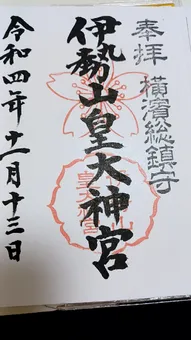 奉拝 横濱総鎮守
伊勢山皇大神宮
令和四年十一月十三日